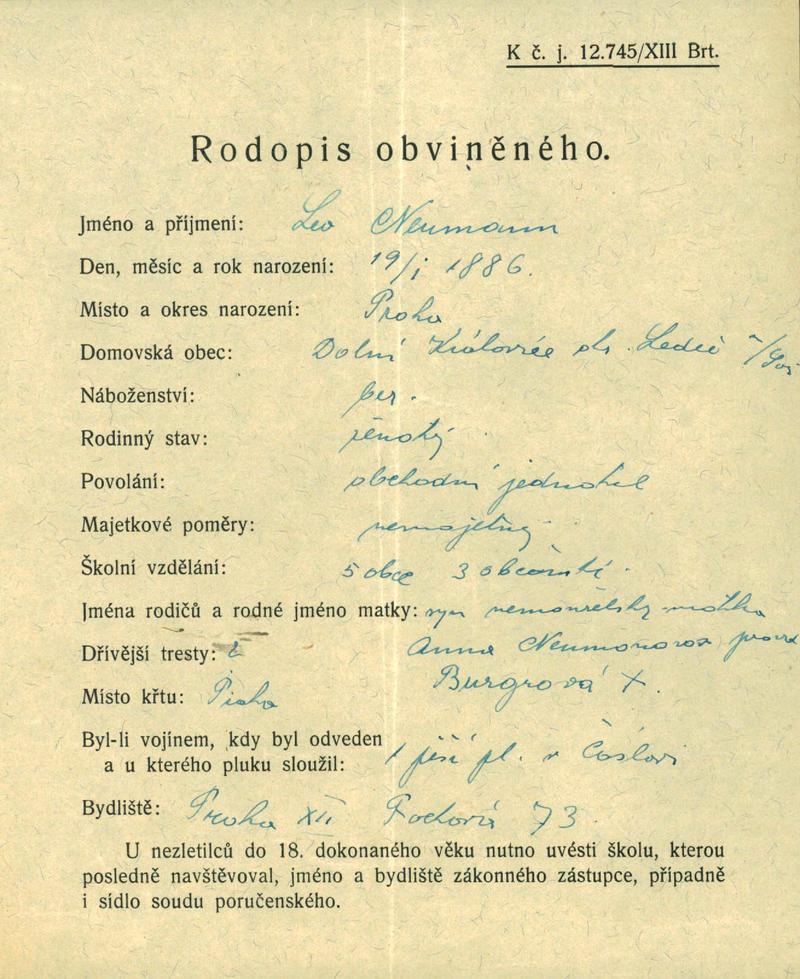 K č. j. 12.745/XIII Brt.
Rodopis obviněného.
Jméno a příjmení: Leo Neumann
Den, měsíc a rok narození: 19/I 1886.
Místo a okres narození: Praha
Domovská obec: Dolní Královice Ledeč n/Sáz.
Náboženství: bez.
Rodinný stav: ženatý
Povolání: obchodní jednatel
Majetkové poměry: nemajetný
Školní vzdělání: 5 obec 3 občanské.
Jména rodičů a rodné jméno matky: syn nemanželský matka
Dřívější tresty: Anna Neumanova
Místo křtu: Praha Burgrová X.
Byl-li vojínem, kdy byl odveden
a u kterého pluku sloužil: pěší pl. v Čáslavi
Bydliště: Praha XII Fochova 73.
U nezletilců do 18. dokonaného věku nutno uvésti školu, kterou
posledně navštěvoval, jméno a bydliště zákonného zástupce, případně
i sídlo soudu poručenského.